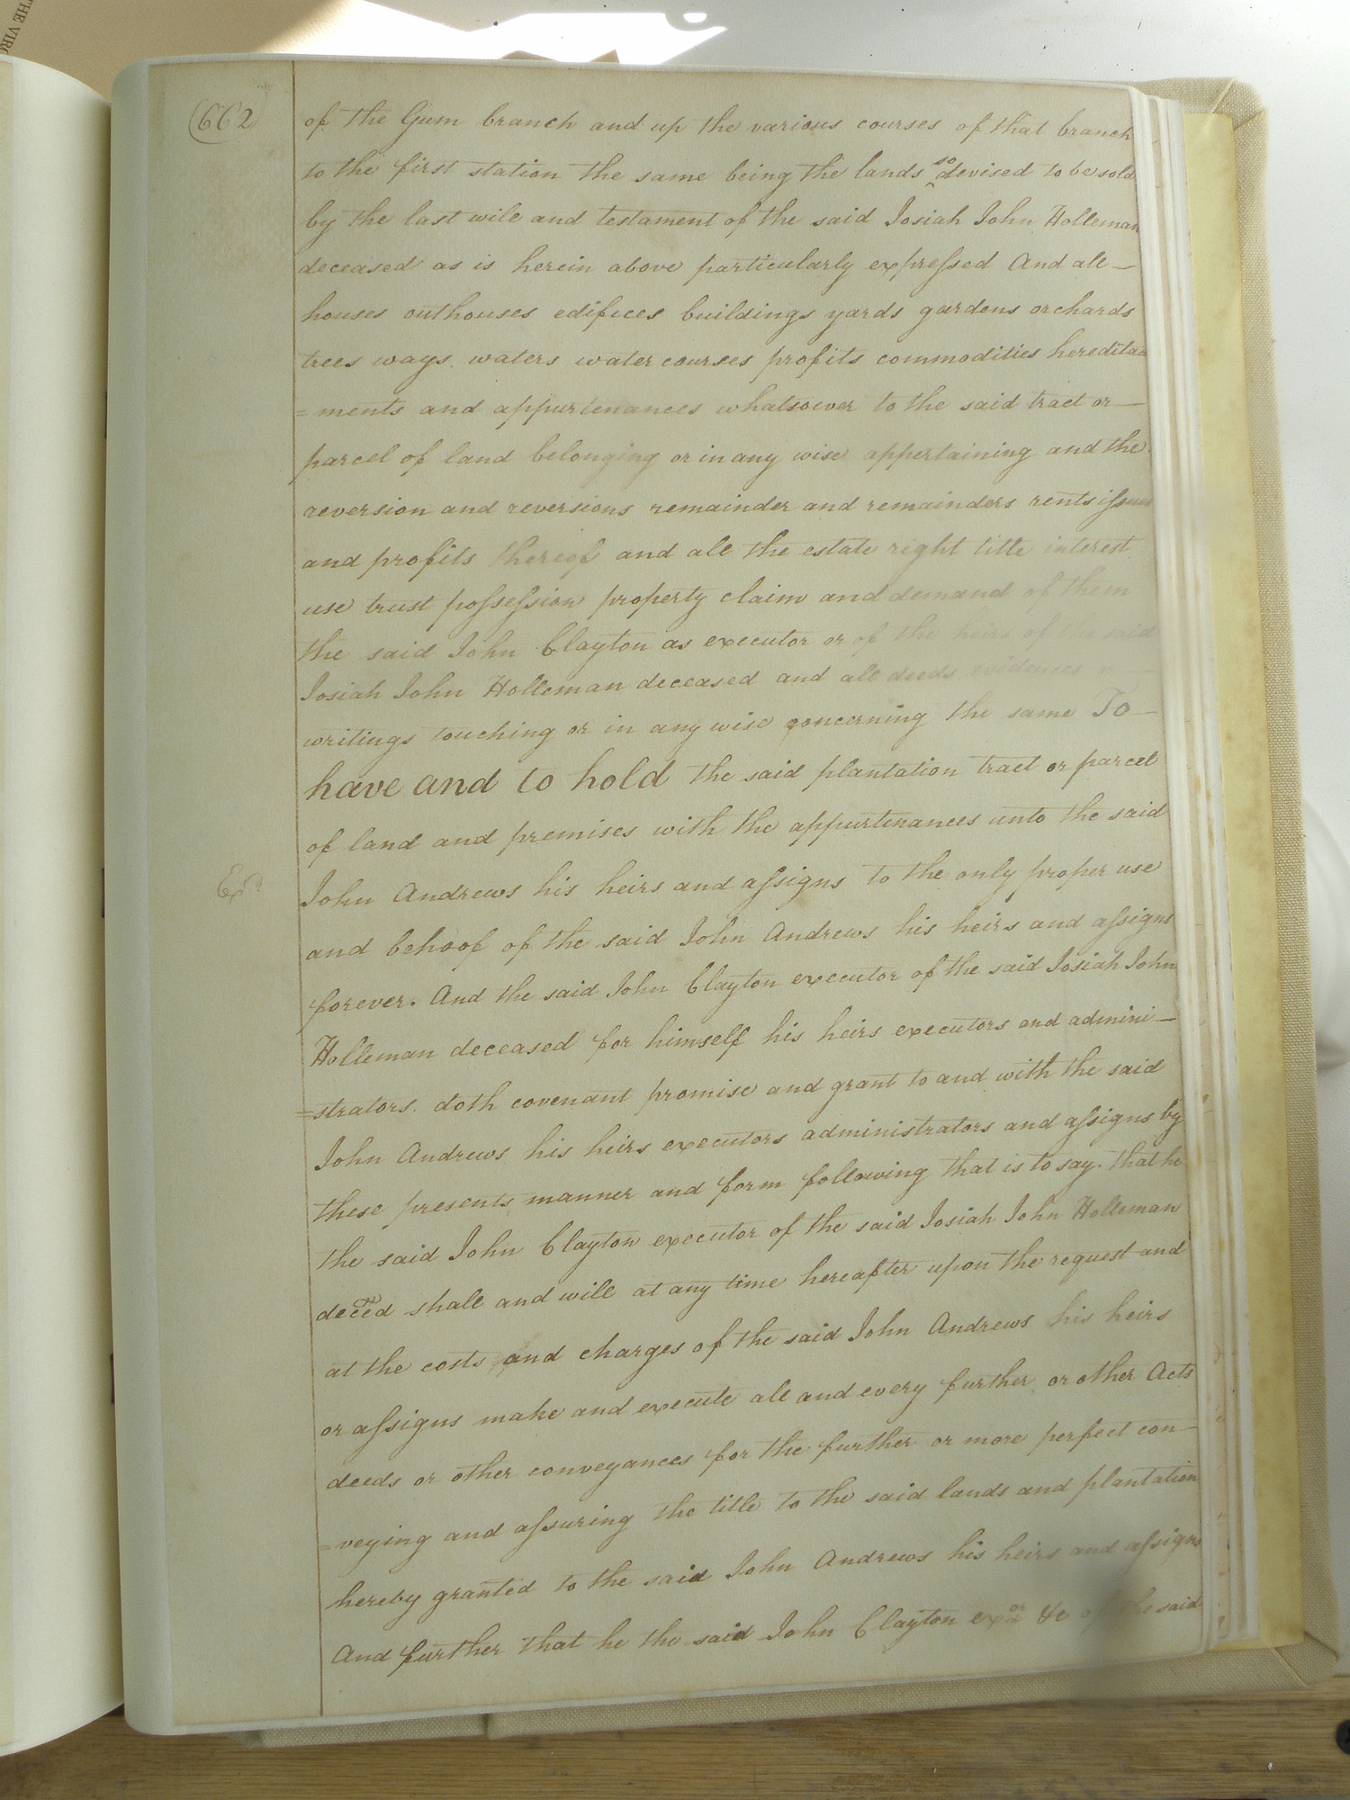 THE VIRG
(662)
of the Gum branch and up the various courses of that branch
to the first station the same being the lands so devised to be sold
by the last will and testament of the said Josiah John Holleman
deceased as is herein above particularly expressed And all—
houses outhouses edifices buildings yards gardens orchards
trees ways. waters water courses profits commodities heredita
=ments and appurtenances whatsoever to the said tract or—
parcel of land belonging or in any wise appertaining and the
reversion and reversions remainder and remainders rents issues
and profits thereof and all the estate right title interest
use trust possession property claim and demand of them
the said John Clayton as executor or of the heirs of the said
Josiah John Holleman deceased and all deeds evidences
writings touching or in any wise concerning the same To—
have and to hold the said plantation tract or parcel
of land and premises with the appurtenances unto the said
Exd.
John Andrews his heirs and assigns to the only proper use
and behoof of the said John Andrews his heirs and assigns
forever. And the said John Clayton executor of the said Josiah John
Holleman deceased for himself his heirs executors and admini—
=strators. doth covenant promise and grant to and with the said
John Andrews his heirs executors administrators and assigns by
these presents manner and form following that is to say. that he
the said John Clayton executor of the said Josiah John Holleman
deced shall and will at any time hereafter upon the request and
at the costs and charges of the said John Andrews his heirs
or assigns make and execute all and every further or other Acts
deeds or other conveyances for the further or more perfect con—
=veying and assuring the title to the said lands and plantation
hereby granted to the said John Andrews his heirs and assigns
And further that he the said John Clayton exor &c of the said